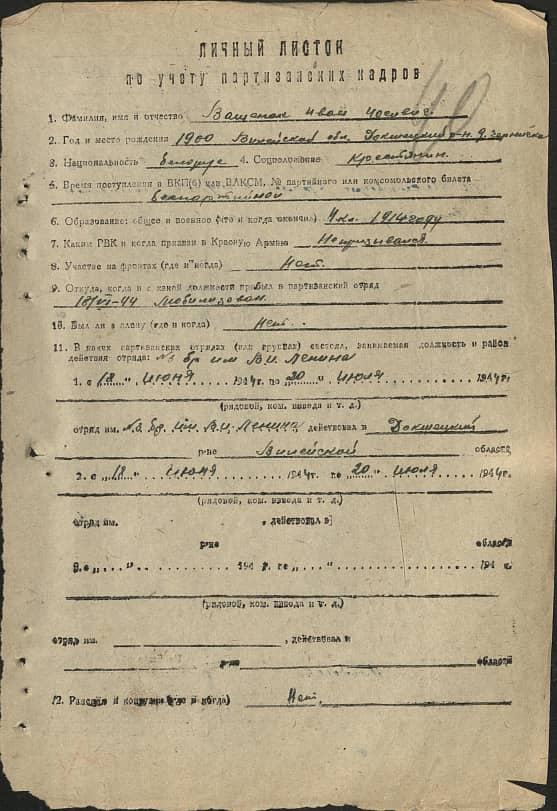 ЛИЧНЫЙ ЛИСТОК
по учету партизанских кадров
1. Фамилия, имя и отчество Ващенок Иван
2. Год и место рождения 1900 Вилейская обл. Докшецкий р-н д.
3. Национальность белорус 4. Соцположение Крестьянин.
5. Время поступления в ВКП(б) или ВЛКСМ, № партийного или комсомольского билета
беспартийной
6. Образование: общее и военное (что и когда окончил) 4 кл. 1914 году
7. Каким РВК и когда призван в Красную Армию Непризывался
8. Участие на фронтах (где и когда) Нет.
9. Откуда, когда и с какой должности прибыл в партизанский отряд
18/VI-44 Мобилизован.
10. Был ли в плену (где и когда) Нет.
11. В каких партизанских отрядах (или группах) состоял, занимаемая должность и район
действия отряда: №3 бр им В.И. Ленина
1. с "18" июня 1944г по "20" июля 1944г.
(рядовой, ком. взвода и т. д.)
отряд им. №3 бр. им. В.И. Ленина, действовал в Докшецкий
р-не Вилейской области
2. с "18" июня 1944г. по "20" июля 1944г.
(рядовой, ком. взвода и т. д.)
отряд им. , действовал в
р-не области
3. с "....." 194 г. по "....." 194 г.
(рядовой, ком. взвода и т. д.)
отряд им. , действовал в
р-не области
12. Ранения и контузии (где и когда) Нет.